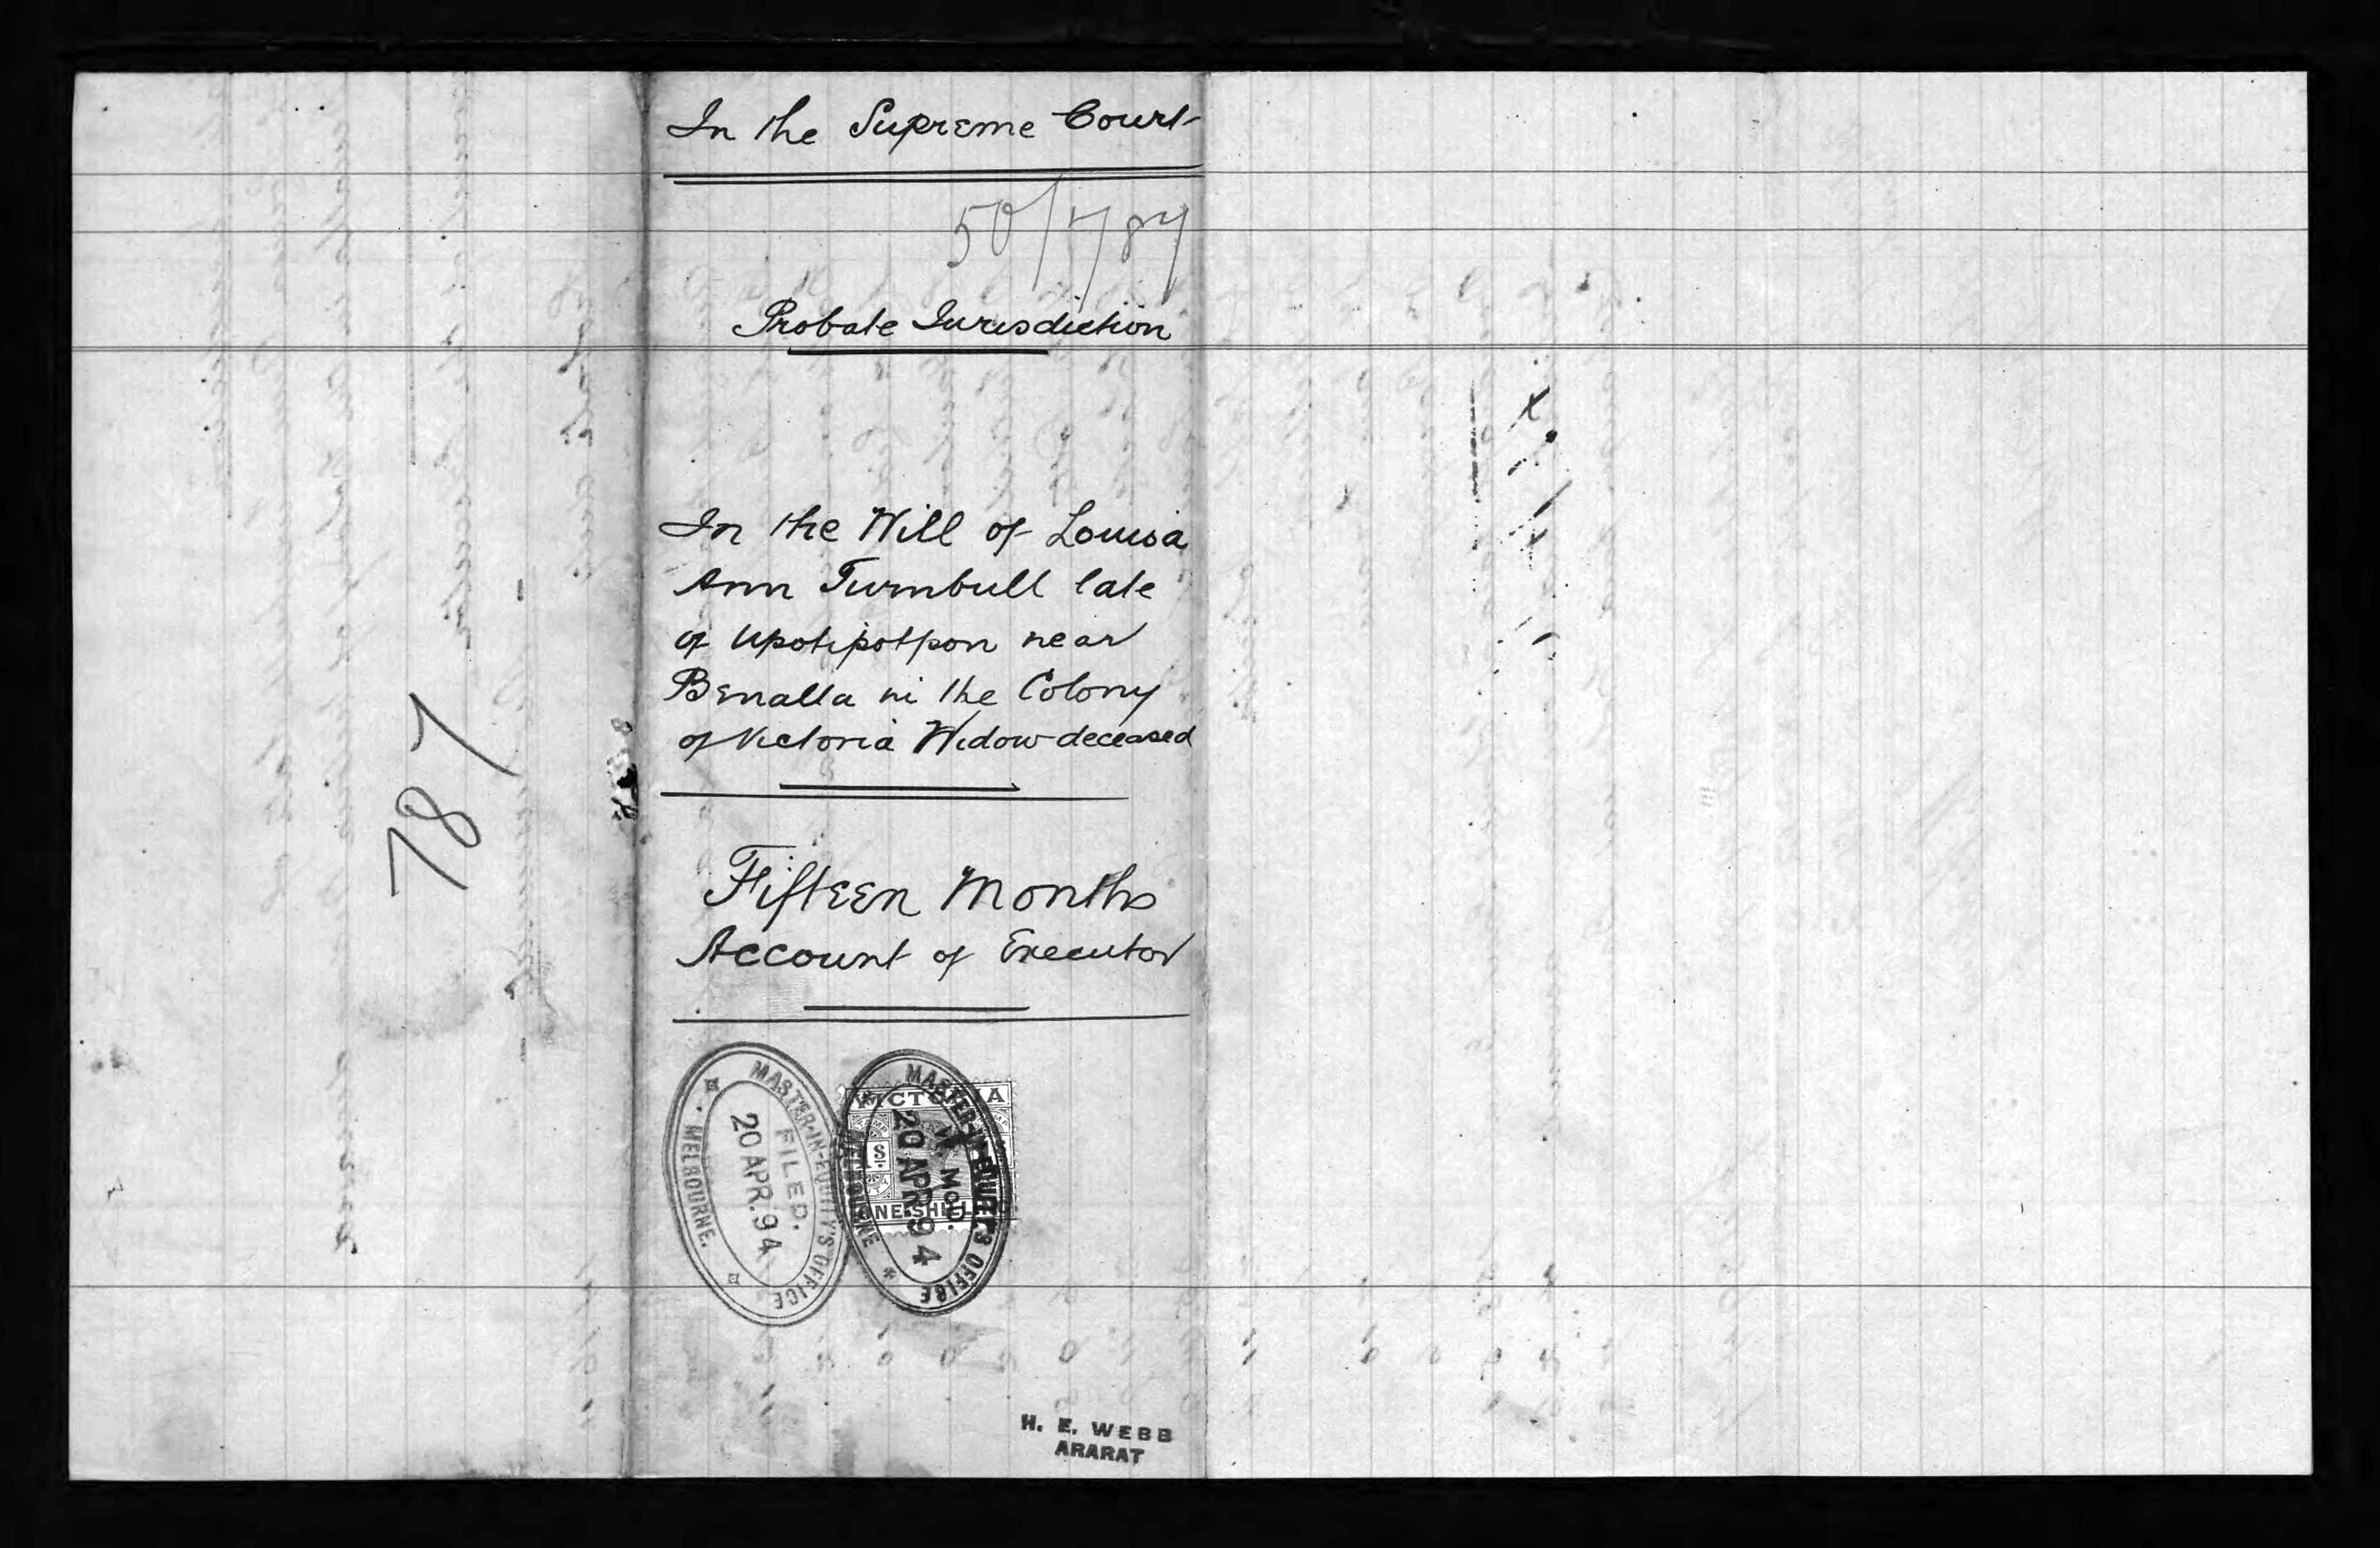 In the Supreme Court
50/787
Probate Jurisdiction
In the Will of Louisa
Ann Turnbull late
of Upotipotpon near
Benalla in the Colony
of Victoria Widow deceased
Fifteen Months
Account of Executor
787
MASTER-IN-EQUITY'S OFFICE
FILED.
20 APR. 94
MELBOURNE.
VICTORIA
1S
ONE SHILL
MASTER-IN-EQUITY'S OFFICE
20 APR. 94
MELBOURNE
H. E. WEBB
ARARAT